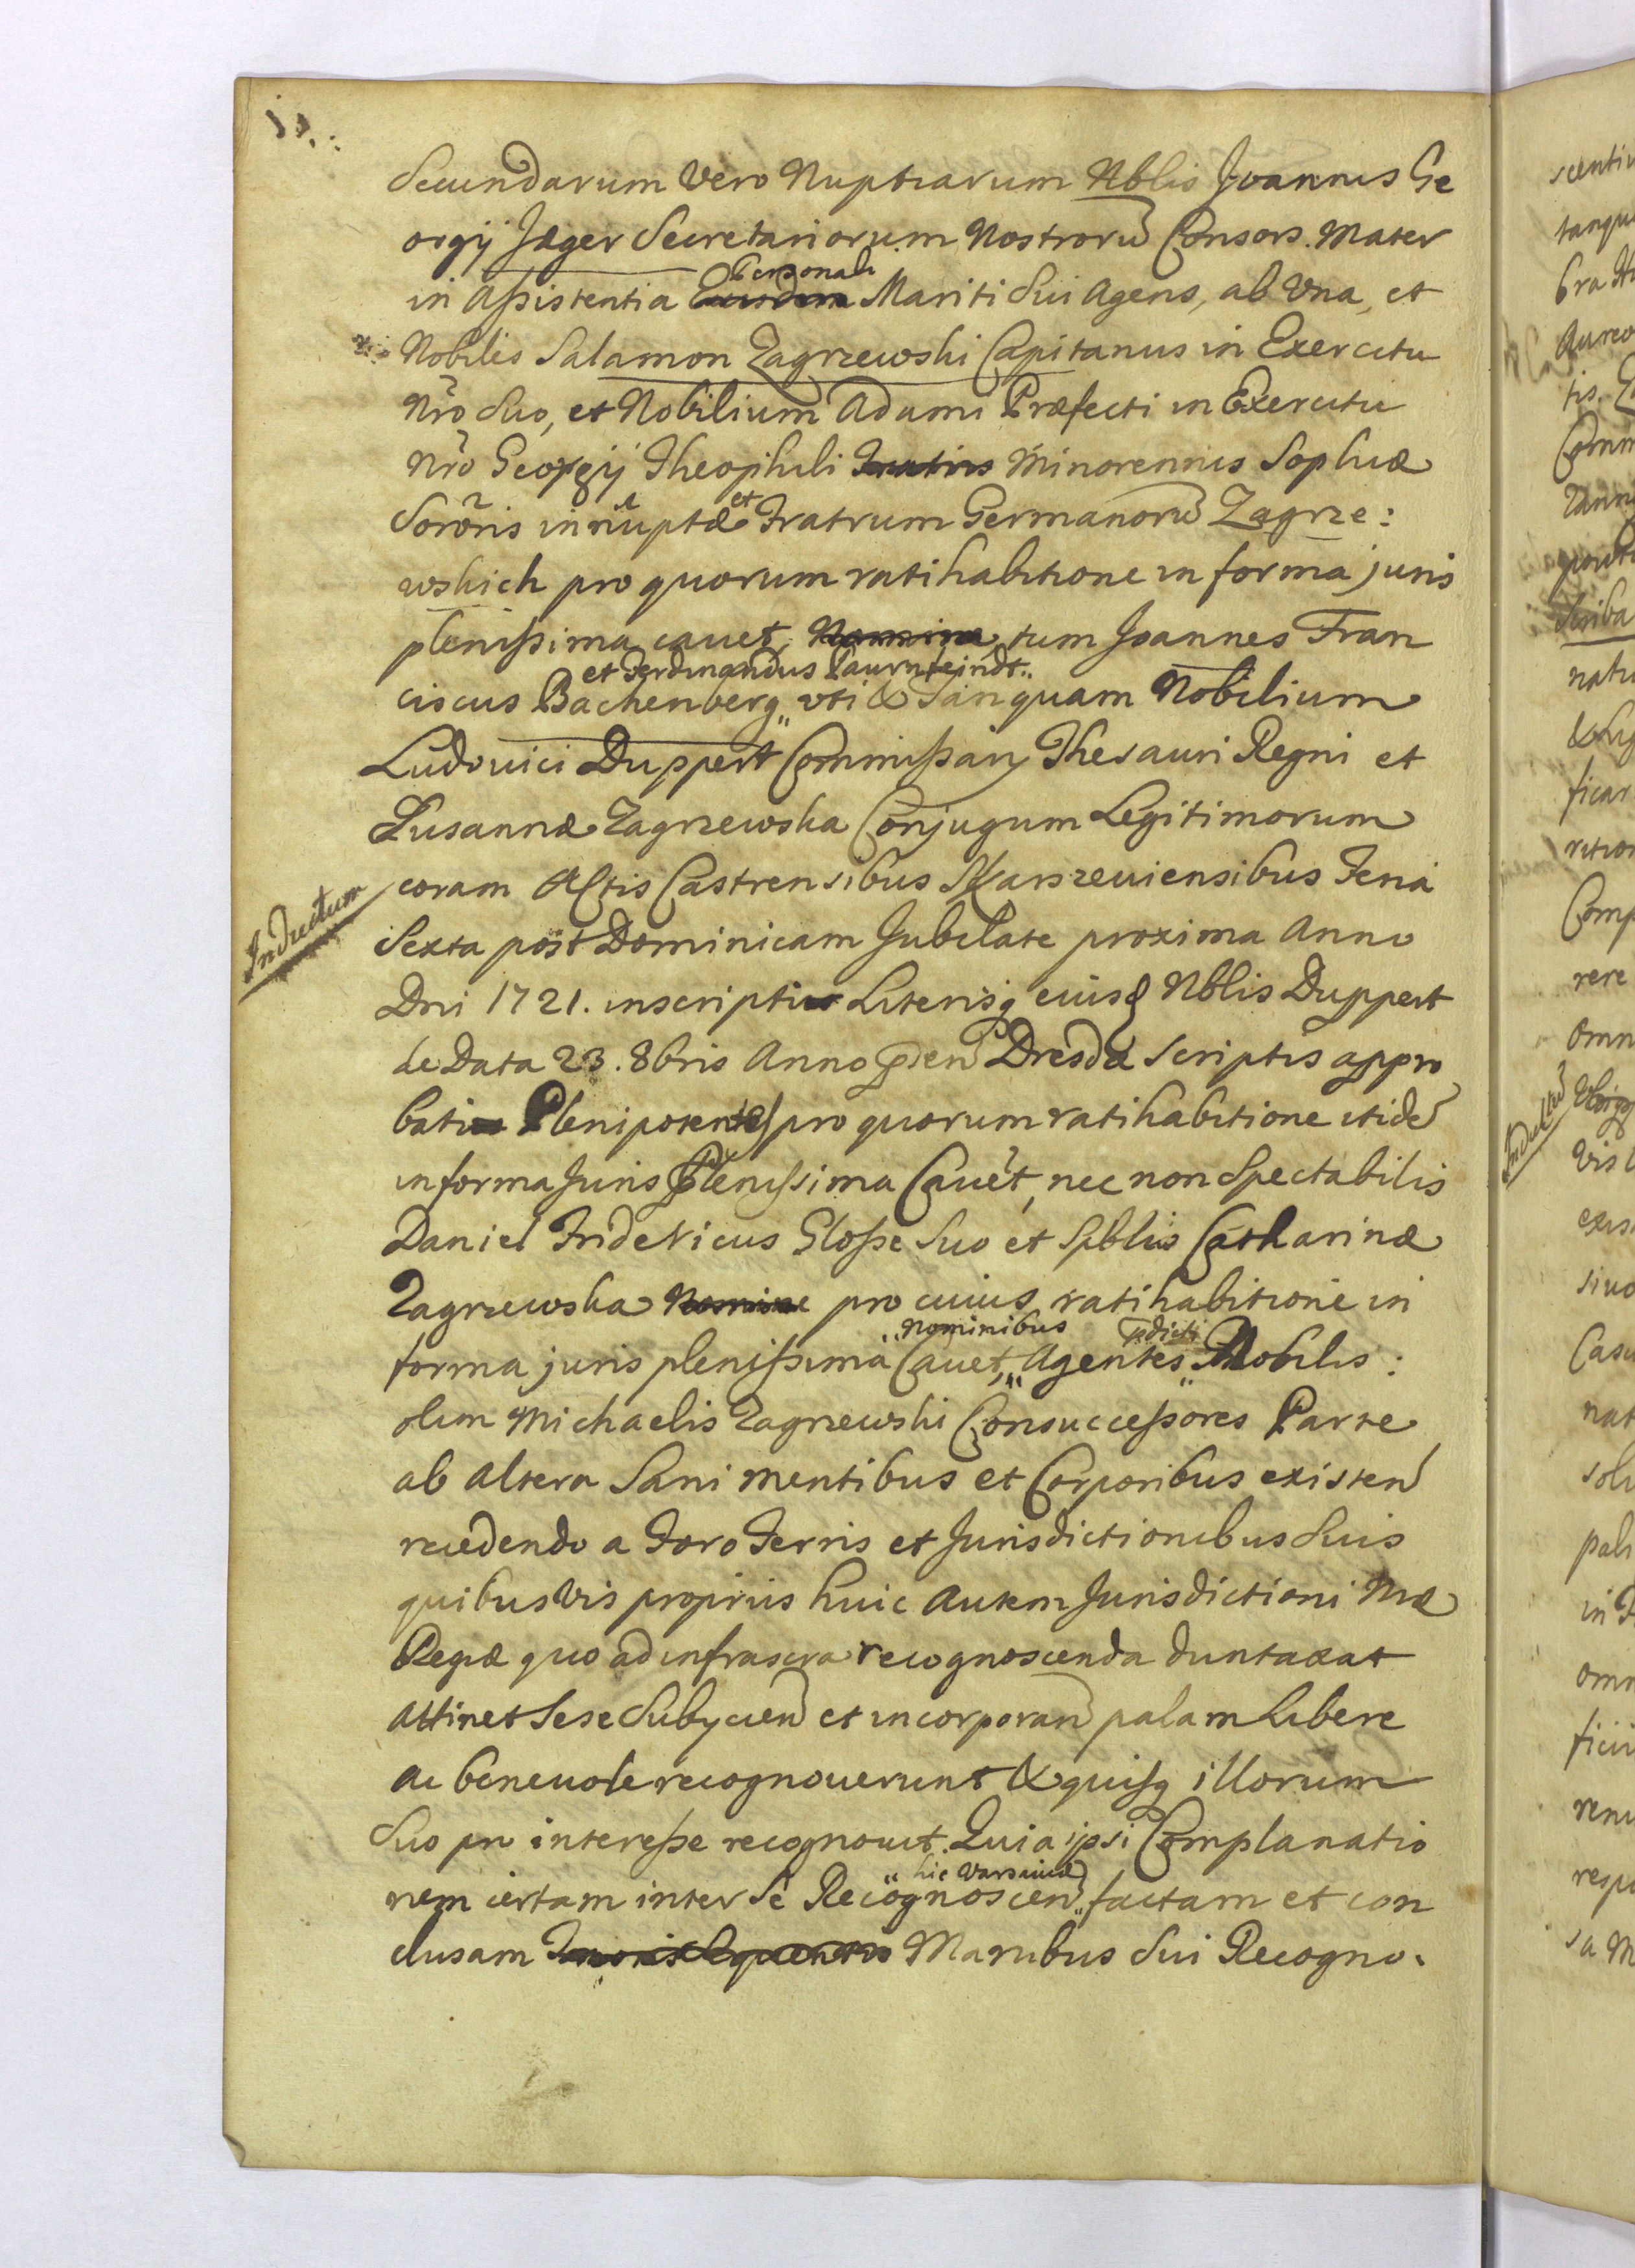 Secundarum Vero Nuptiarum Nblis Joannis Ge
orgij Jæger Secretariorum Nostrorũ Consors. Mater
Personali
in Assistentia Eiusdem Mariti Sui Agens, ab Vna, et
Nobilis Salamon Zagrzewski Capitanus in Exercitu
Nro Suo, et Nobilium Adami Præfecti in Exercitu
Nro Georgij Theophili Fratris Minorennis Sophiæ
et
Sororis innuptæ Fratrum Germanorũ Zagrze:
wskich pro quorum ratihabitione in forma juris
plenissima cauet, Nomine, tum Joannes Fran
et Ferdinandus Paurnfeindt
ciscus Bachenberg uti & Tanquam Nobilium
Ludouici Duppert Commissarij Thesauri Regni et
Susannæ Zagrzewska Conjugum Legitimorum
Inductum
coram Actis Castrensibus Warszeuiensibus Feria
Sexta post Dominicam Jubilate proxima Anno
Dni 1721. inscriptis Literisq eiusd Nblis Duppert
de Data 23. 8bris Anno Dresdæ scriptis appro
batis Plenipotentes pro quorum ratihabitione itidē
in forma Juris Plenissima Cauet, nec non Spectabilis
Daniel Fridericus Glosse Suo et Spblis Catharinæ
Zagrzewska Nomine pro cuius ratihabitione in
nominibus pdicti
forma juris plenissima Cauet, Agentes Nobilis:
olim Michaelis Zagrzewski Consuccessores Parte
ab Altera Sani mentibus et Corporibus existen
recedendo a Foro Terris et Jurisdictionibus Suis
quibusvis proprius huic Autem Jurisdictioni Nræ
Regiæ quo ad infrascra recognoscenda duntaxat
Attinet Sese Subijcien et incorporan palam Libere
ac beneuole recognouerunt & quisq illorum
Suo pro interesse recognouit. Quia ipsi Complanatio
hic Varsauiæ
nem certam inter Se Recognoscen factam et con
clusam Manibus Sui Recogno.